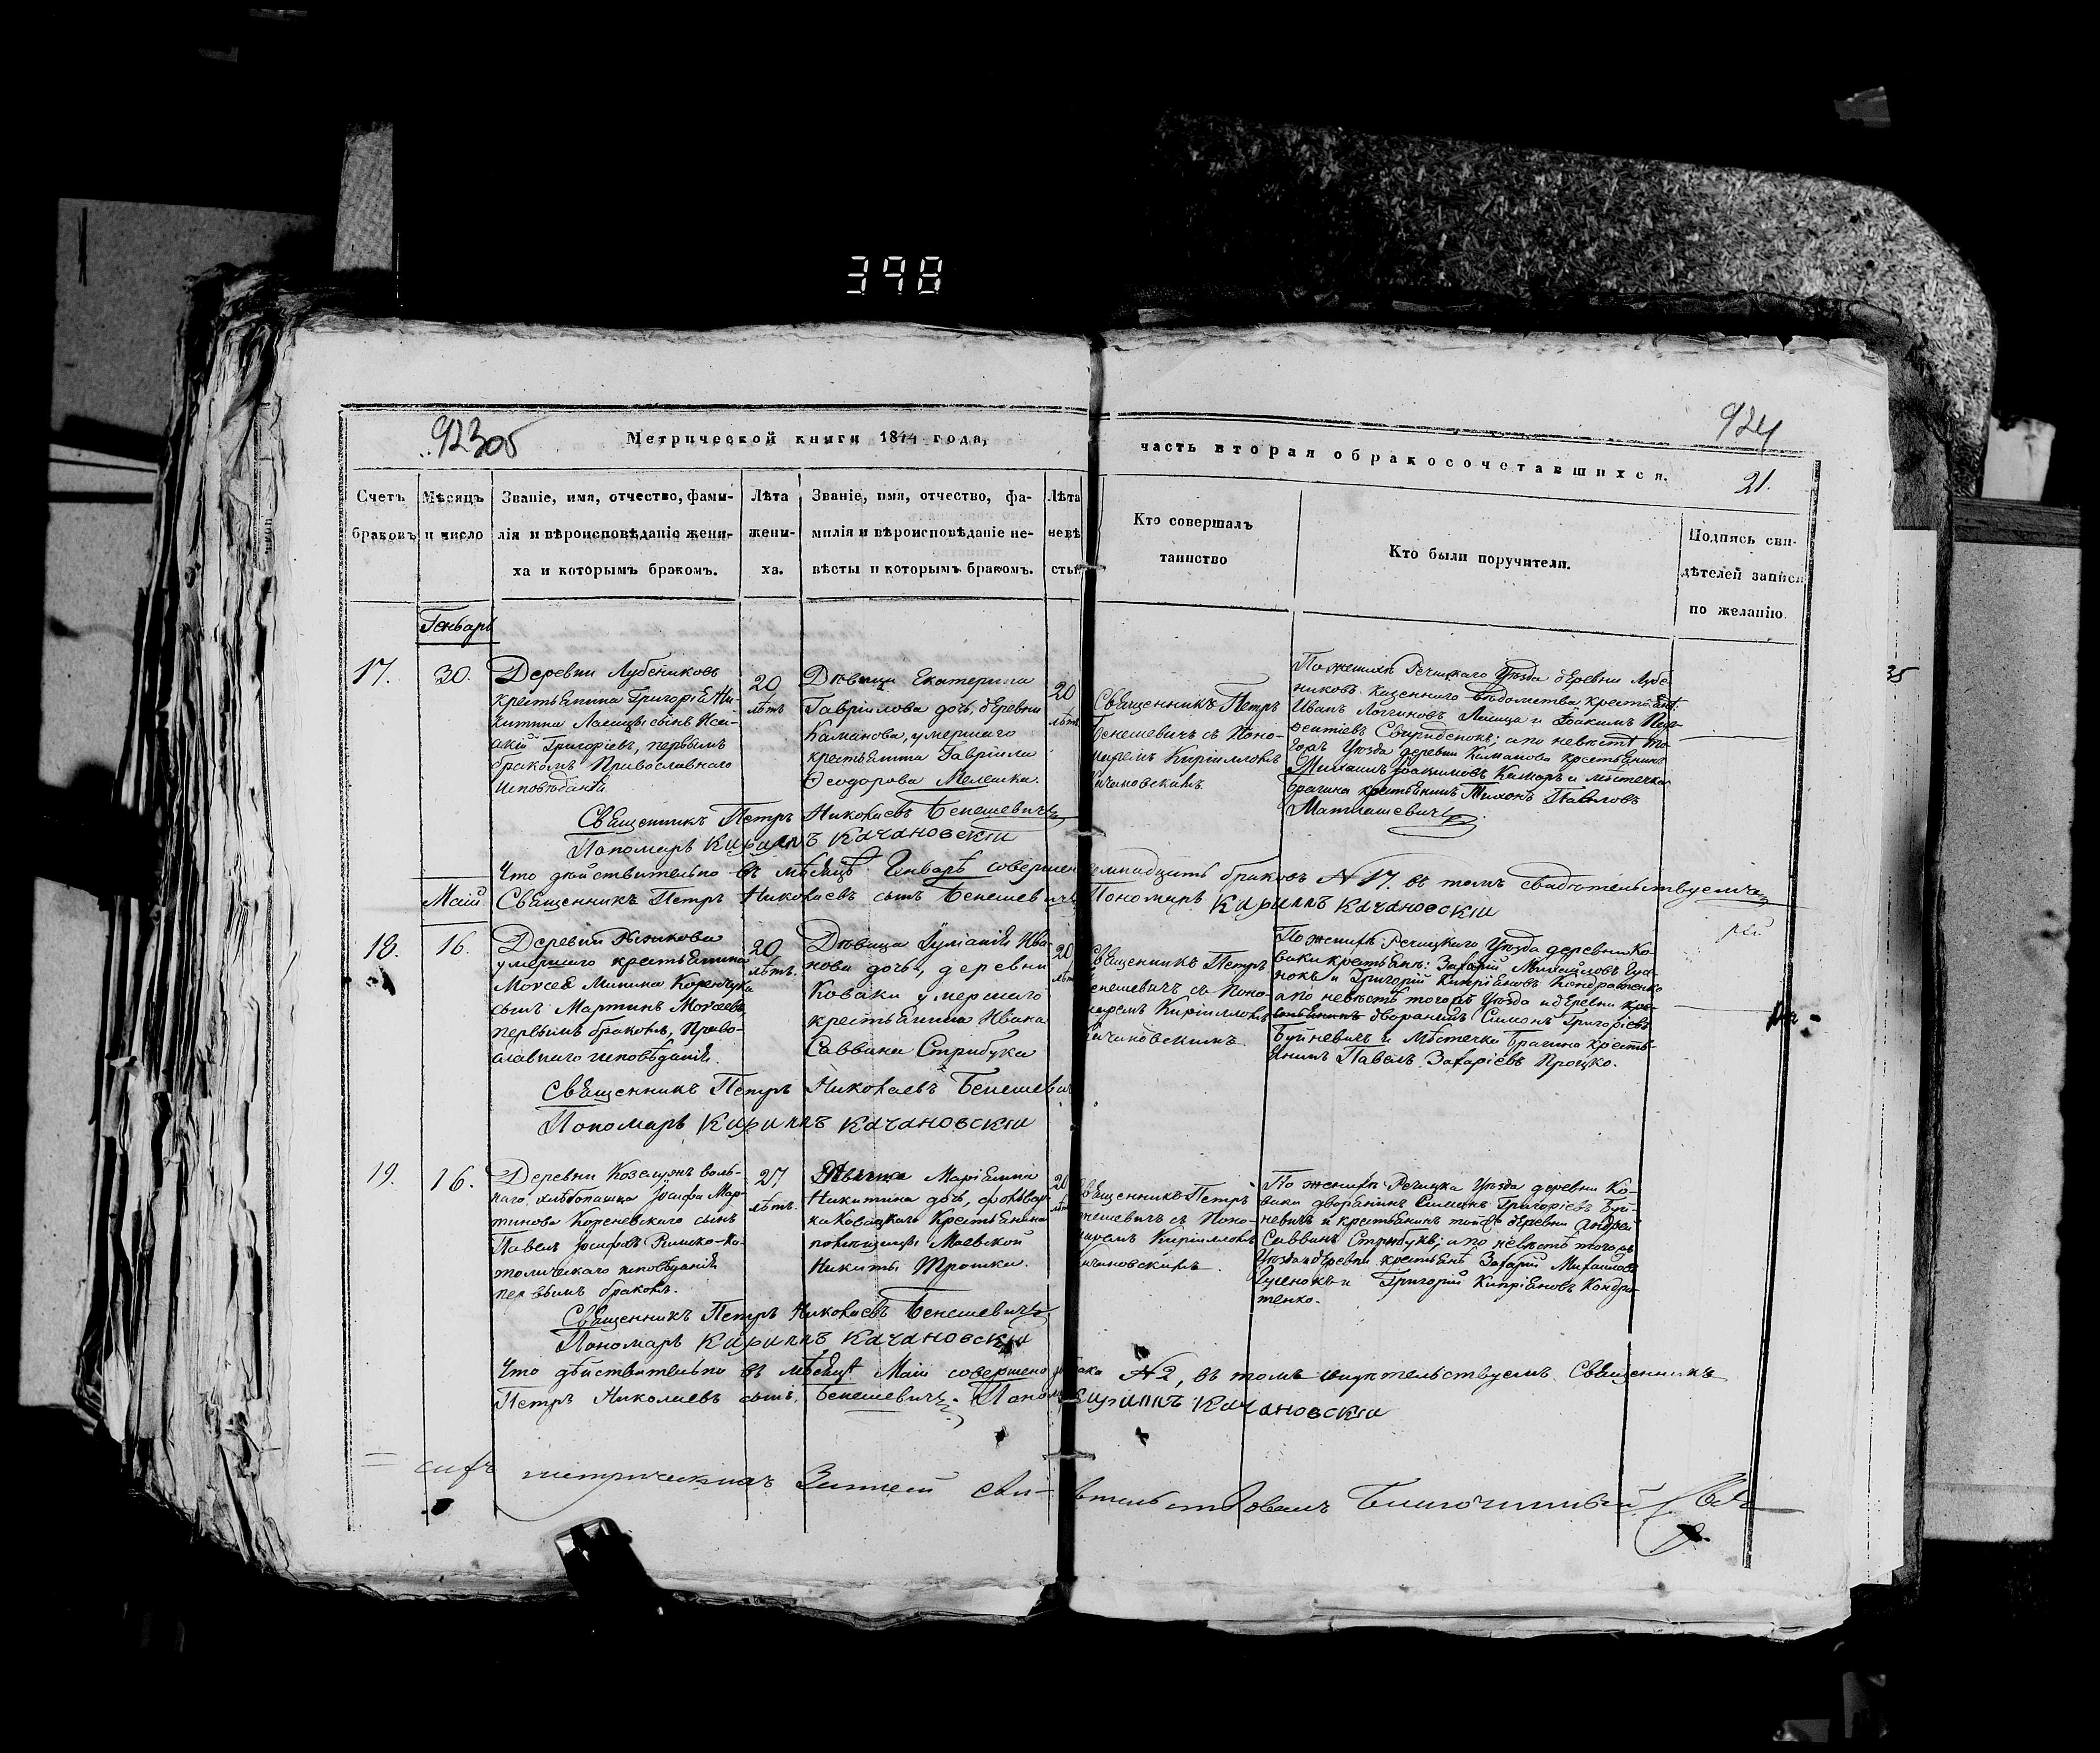 398
923об
Метрической книги 1844 года,
часть вторая о бракосочетавшихся.
924
21.
Счетъ браковъ
Мѣсяцъ и число
Званіе, имя, отчество, фами-
лія и вѣроисповѣданіе жени-
ха и которымъ бракомъ.
Лѣта
жени-
ха.
Званіе, имя, отчество, фа-
милія и вѣроисповѣданіе не-
вѣсты и которымъ бракомъ.
Лѣта
невѣ
сты
Кто совершалъ
таинство
Кто были поручители.
Подпись сви-
дѣтелей записи
по желанію.
Генварь
17.
30.
Деревни Лубениковъ
крестьянина Григорія Ни-
китина Лапицы сынъ Иса-
акій Григоріевъ, первымъ
бракомъ Православнаго
Исповѣданія
20
лѣтъ
Дѣвица Екатерина
Гавріилова дочь, деревни
Каманова, умершаго
крестьянина Гавріила
Ѳеодорова Мелешка.
20
лѣтъ
Священникъ Петръ
Бенешевичъ съ Поно-
маремъ Кирилломъ
Качановскимъ.
По женихѣ Рѣчицкаго Уѣзда деревни Лубе-
никовъ казеннаго вѣдомства крестьяне
Иванъ Логгиновъ Лапица и Іоакимъ
Свириденокъ; а по невѣстѣ то-
гожъ Уѣзда деревни Каманова крестьянинъ
Михаилъ Іоакимовъ Комаръ и мѣстечка
Брагина крестьянинъ Тихонъ Павловъ
Матиашевичъ
Священникъ Петръ Николаевъ Бенешевичъ
Пономарь Кириллъ Качановскій
Что дѣйствительно въ мѣсяцѣ Генварѣ совершено семнадцать браковъ №17. въ томъ свидѣтельствуемъ
Май
Священникъ Петръ Николаевъ сынъ Бенешевичъ Пономарь Кириллъ Качановскій
18.
16.
Деревни
умершаго крестьянина
Моисея Минина Коренчука
сынъ Мартинъ Моисеевъ,
первымъ бракомъ, Право-
славнаго исповѣданія.
20
лѣтъ.
Дѣвица Іуліанія Ива-
нова дочь, деревни
Коваки умершаго
крестьянина Ивана
Саввина Стрибука
20
лѣтъ
Священникъ Петръ
Бенешевичъ съ Поно-
маремъ Кирилломъ
Качановскимъ.
По женихѣ Рѣчицкаго Уѣзда деревни Ко-
ваки крестьянъ: Захарій Михайловъ Гуле-
нокъ и Григорій Кипріановъ Кондратенко
а по невѣстѣ тогожъ Уѣзда и деревни кре-
стьянинъ дворанинъ Симонъ Григоріевъ
Буйневичъ и Мѣстечка Брагина крестья-
нинъ Павелъ Захаріевъ Процко.
Священникъ Петръ Николаевъ Бенешевичъ
Пономарь Кириллъ Качановскій
19.
16.
Деревни Козелужъ воль-
наго хлѣбопашца Іосифа Мар-
тинова Кореневскаго сынъ
Павелъ Іосифовъ Римско-Ка-
толическаго исповѣданія
первымъ бракомъ.
27
лѣтъ.
Дѣвица Маріанна
Никитина дочь, фольвар-
ка Ковацкаго Крестьянина
помѣщицы Маевской
Никиты Трошки.
20
лѣтъ
Священникъ Петръ
Бенешевичъ съ Поно-
маремъ Кирилломъ
Качановскимъ.
По женихѣ Рѣчицка Уѣзда деревни Ко-
ваки дворанинъ Симонъ Григоріевъ Буй-
невичъ и крестьянинъ тойжъ деревни Андрей
Саввинъ Стрибукъ; а по невѣстѣ тогожъ
Уѣзда и деревни крестьянъ Захарій Михайловъ
Гуленокъ и Григорій Кипріановъ Кондра-
тенко.
Священникъ Петръ Николаевъ Бенешевичъ
Пономарь Кириллъ Качановскій
Что дѣйствительно въ мѣсяцѣ Маіи совершено два брака №2, въ томъ свидѣтельствуемъ Священникъ
Петръ Николаевъ сынъ Бенешевичъ. Пономарь Кириллъ Качановскій
сихъ метрическихъ Записей свидѣтельствовалъ Благочинный